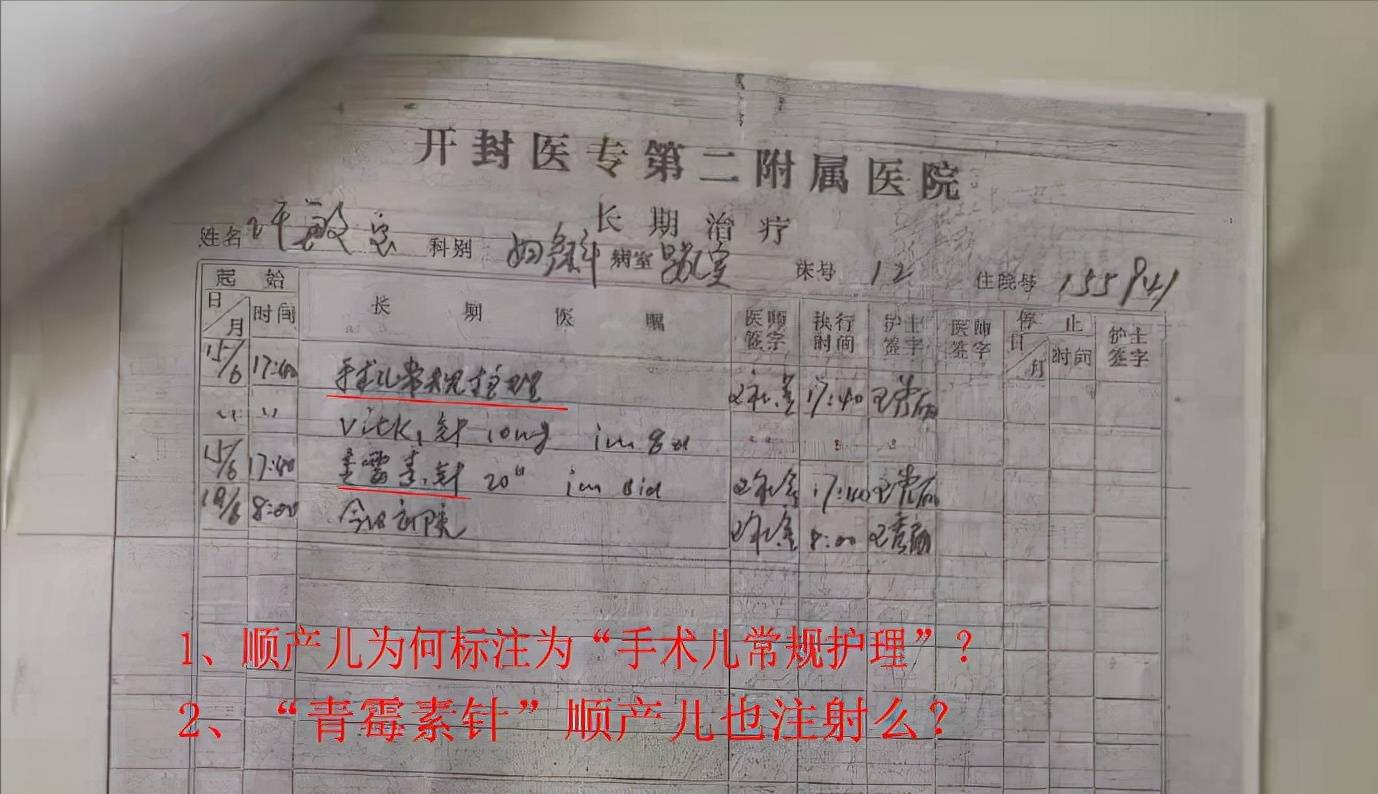 开封医专第二附属医院
长期治疗
姓名 许敏 科别 妇产科 病室 婴儿室 床号 12 住院号 155941
起始 长期医嘱 医师签字 执行时间 护士签字 医师签字 停止 护士签字
日/月 时间 日/月 时间
15/6 17:40 手术儿常规护理 17:40
〃 〃 Vitk₁针 10mg im qd 〃 〃 〃
15/6 17:40 青霉素针 20 im bid 17:40
18/6 8:00 今日出院 8:00
1、顺产儿为何标注为“手术儿常规护理”？
2、“青霉素针”顺产儿也注射么？